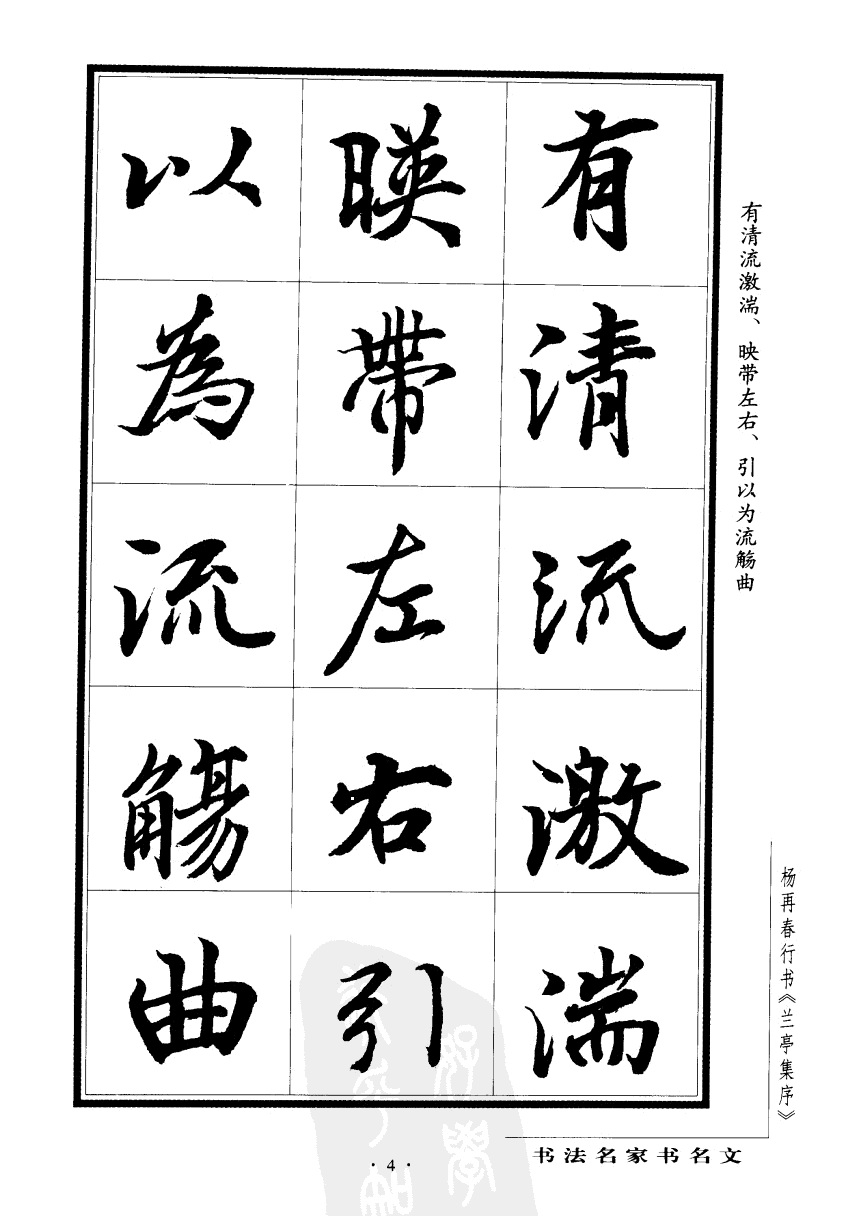 有清流激湍
暎帶左右引
以為流觴曲
有清流激湍、映带左右、引以为流觞曲
杨再春行书《兰亭集序》
书法名家书名文
·4·